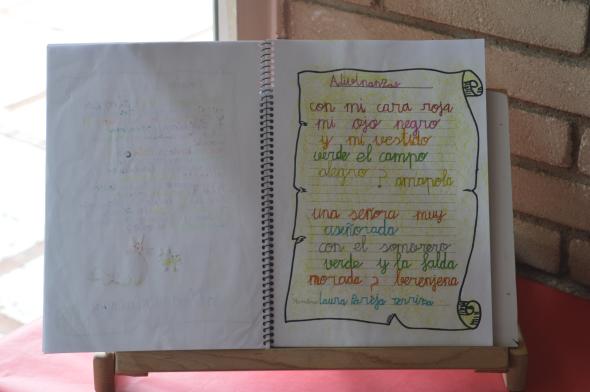 Adivinanzas
con mi cara roja
mi ojo negro
y mi vestido
verde el campo
alegro ? amapola
una señora muy
aseñorada
con el somorero
verde y la falda
morada ? berenjena
Nombre: Laura